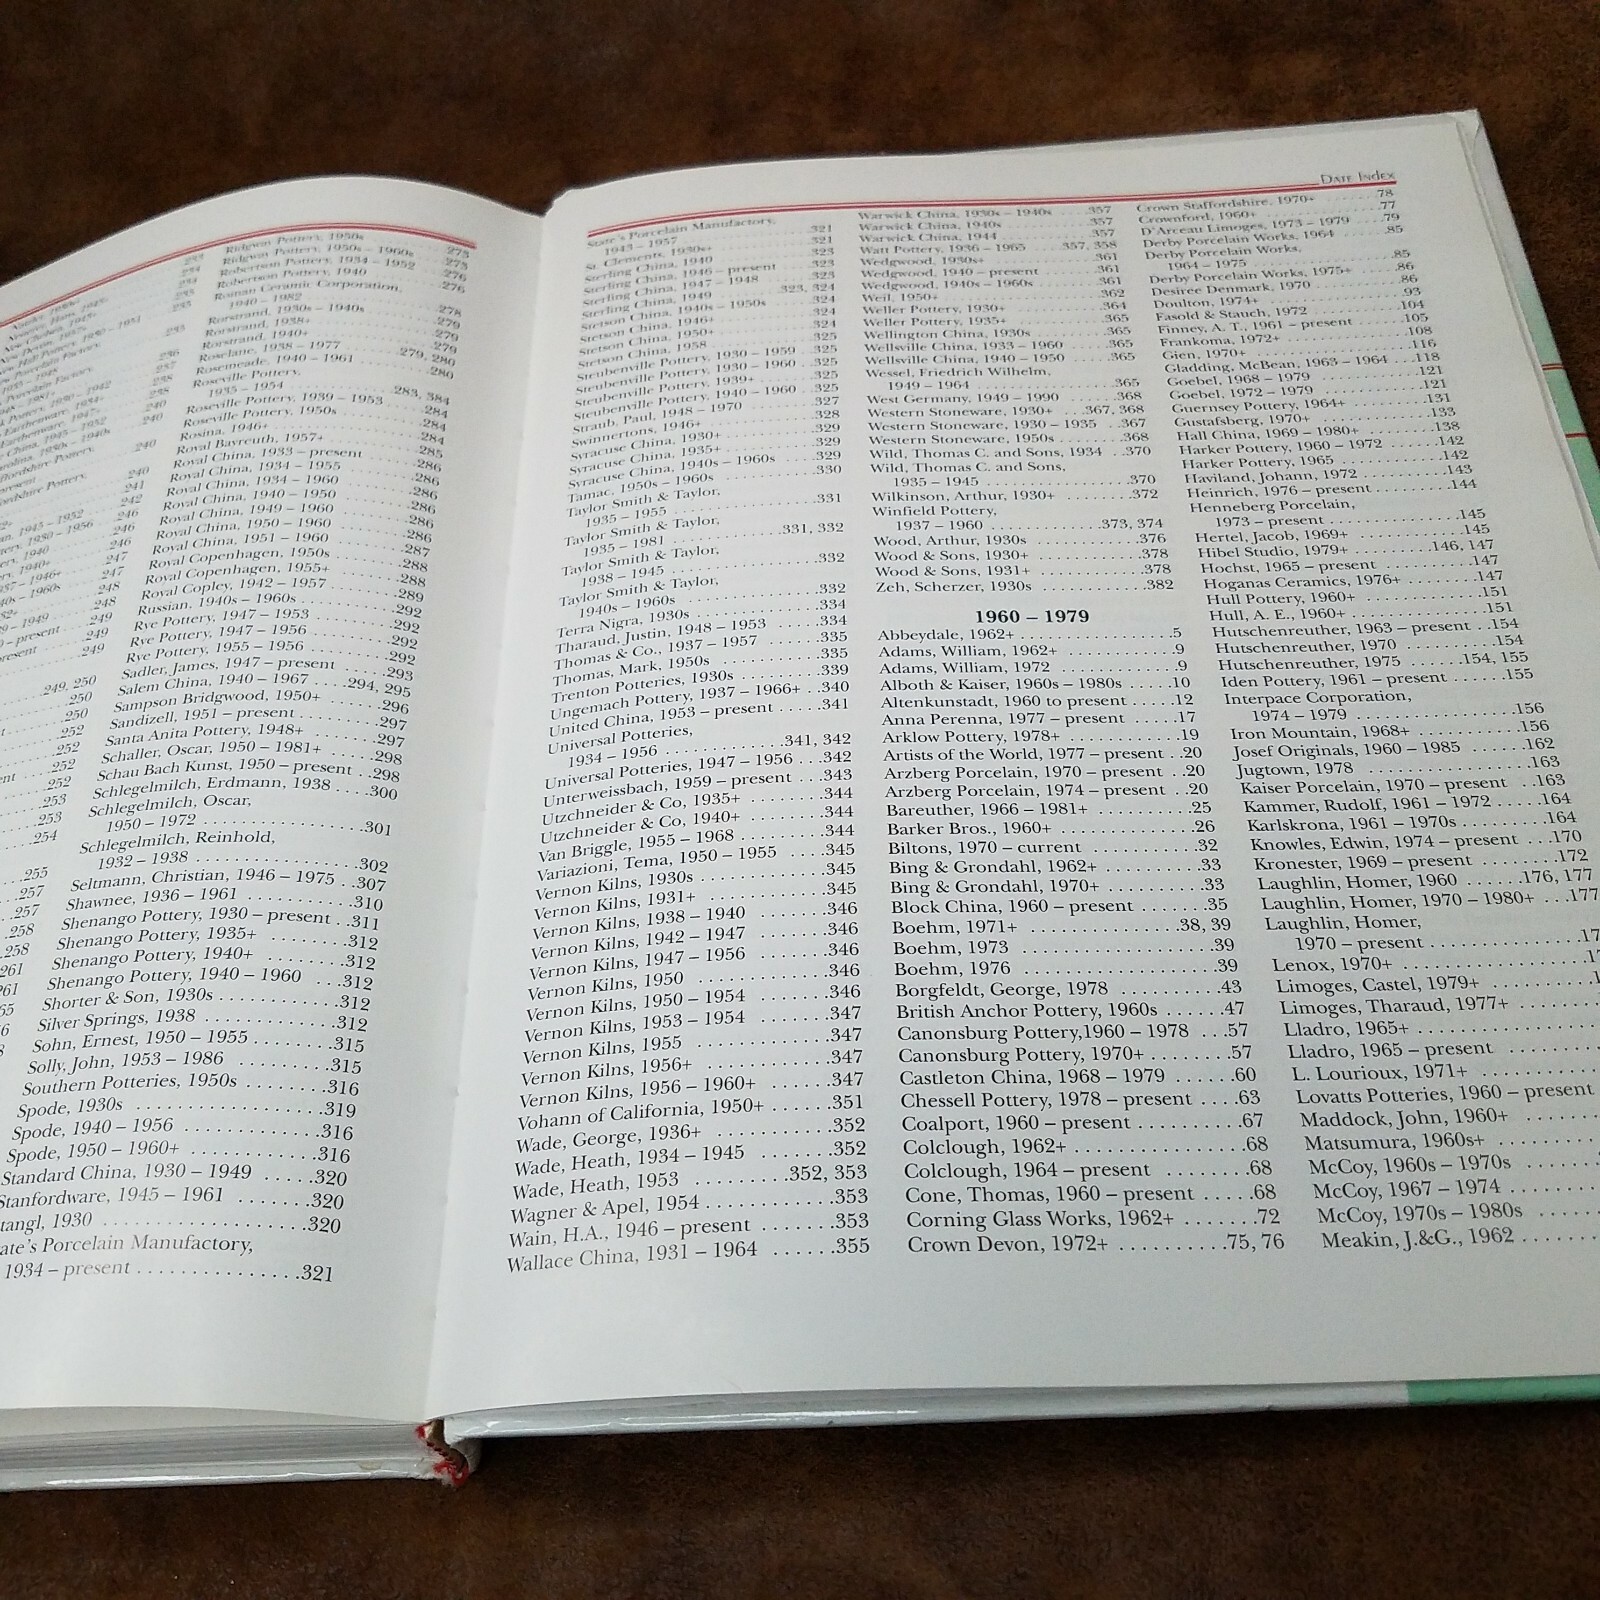 Ridgway Pottery, 1950s 273
Ridgway Pottery, 1950s – 1960s 273
Robertson Pottery, 1934 – 1952 276
Robertson Pottery, 1940 276
Roman Ceramic Corporation,
1940 – 1982 278
Rorstrand, 1930s – 1940s 279
Rorstrand, 1938+ 279
Rorstrand, 1940+ 279
Roselane, 1938 – 1977 279, 280
Rosemeade, 1940 – 1961 280
Roseville Pottery,
1935 – 1954 283, 384
Roseville Pottery, 1939 – 1953 284
Roseville Pottery, 1950s 284
Rosina, 1946+ 284
Royal Bayreuth, 1957+ 285
Royal China, 1933 – present 286
Royal China, 1934 – 1955 286
Royal China, 1934 – 1960 286
Royal China, 1940 – 1950 286
Royal China, 1949 – 1960 286
Royal China, 1950 – 1960 287
Royal China, 1951 – 1960 288
Royal Copenhagen, 1950s 288
Royal Copenhagen, 1955+ 289
Royal Copley, 1942 – 1957
Russian, 1940s – 1960s 292
Rye Pottery, 1947 – 1953 292
Rye Pottery, 1947 – 1956 292
Rye Pottery, 1955 – 1956 292
Sadler, James, 1947 – present 293
Salem China, 1940 – 1967 ....294, 295
Sampson Bridgwood, 1950+ 296
Sandizell, 1951 – present 297
Santa Anita Pottery, 1948+ 297
Schaller, Oscar, 1950 – 1981+ 298
Schau Bach Kunst, 1950 – present ..298
Schlegelmilch, Erdmann, 1938 ....300
Schlegelmilch, Oscar,
1950 – 1972 301
Schlegelmilch, Reinhold,
1932 – 1938 302
Seltmann, Christian, 1946 – 1975 ..307
Shawnee, 1936 – 1961 310
Shenango Pottery, 1930 – present ..311
Shenango Pottery, 1935+ 312
Shenango Pottery, 1940+ 312
Shenango Pottery, 1940 – 1960 ...312
Shorter & Son, 1930s 312
Silver Springs, 1938 312
Sohn, Ernest, 1950 – 1955 315
Solly, John, 1953 – 1986 315
Southern Potteries, 1950s 316
Spode, 1930s 319
Spode, 1940 – 1956 316
Spode, 1950 – 1960+ 316
Standard China, 1930 – 1949 320
Stanfordware, 1945 – 1961 320
tangl, 1930 320
ate's Porcelain Manufactory,
1934 – present 321
Date Index
State's Porcelain Manufactory,
1943 – 1957 321
St. Clements, 1930s+ 321
Sterling China, 1940 323
Sterling China, 1946 – present 323
Sterling China, 1947 – 1948 323
Sterling China, 1949 323, 324
Stetson China, 1940s – 1950s 324
Stetson China, 1946+ 324
Stetson China, 1950+ 324
Stetson China, 1958 325
Steubenville Pottery, 1930 – 1959 ..325
Steubenville Pottery, 1930 – 1960 ..325
Steubenville Pottery, 1939+ 325
Steubenville Pottery, 1940 – 1960 ..325
Straub, Paul, 1948 – 1970 327
Swinnertons, 1946+ 328
Syracuse China, 1930+ 329
Syracuse China, 1935+ 329
Syracuse China, 1940s – 1960s 329
Tamac, 1950s – 1960s 330
Taylor Smith & Taylor,
1935 – 1955 331
Taylor Smith & Taylor,
1935 – 1981 331, 332
Taylor Smith & Taylor,
1938 – 1945 332
Taylor Smith & Taylor,
1940s – 1960s 332
Terra Nigra, 1930s 334
Tharaud, Justin, 1948 – 1953 334
Thomas & Co., 1937 – 1957 335
Thomas, Mark, 1950s 335
Trenton Potteries, 1930s 339
Ungemach Pottery, 1937 – 1966+ ..340
United China, 1953 – present 341
Universal Potteries,
1934 – 1956 341, 342
Universal Potteries, 1947 – 1956 ...342
Unterweissbach, 1959 – present ...343
Utzchneider & Co, 1935+ 344
Utzchneider & Co, 1940+ 344
Van Briggle, 1955 – 1968 344
Variazioni, Tema, 1950 – 1955 ....345
Vernon Kilns, 1930s 345
Vernon Kilns, 1931+ 345
Vernon Kilns, 1938 – 1940 346
Vernon Kilns, 1942 – 1947 346
Vernon Kilns, 1947 – 1956 346
Vernon Kilns, 1950 346
Vernon Kilns, 1950 – 1954 346
Vernon Kilns, 1953 – 1954 347
Vernon Kilns, 1955 347
Vernon Kilns, 1956+ 347
Vernon Kilns, 1956 – 1960+ 347
Vohann of California, 1950+ 351
Wade, George, 1936+ 352
Wade, Heath, 1934 – 1945 352
Wade, Heath, 1953 352, 353
Wagner & Apel, 1954 353
Wain, H.A., 1946 – present 353
Wallace China, 1931 – 1964 355
Warwick China, 1930s – 1940s 357
Warwick China, 1940s 357
Warwick China, 1944 357
Watt Pottery, 1936 – 1965 357, 358
Wedgwood, 1930s+ 361
Wedgwood, 1940 – present 361
Wedgwood, 1940s – 1960s 361
Weil, 1950+ 362
Weller Pottery, 1930+ 364
Weller Pottery, 1935+ 365
Wellington China, 1930s 365
Wellsville China, 1933 – 1960 365
Wellsville China, 1940 – 1950 365
Wessel, Friedrich Wilhelm,
1949 – 1964 365
West Germany, 1949 – 1990 368
Western Stoneware, 1930+ ...367, 368
Western Stoneware, 1930 – 1935 ..367
Western Stoneware, 1950s 368
Wild, Thomas C. and Sons, 1934 ..370
Wild, Thomas C. and Sons,
1935 – 1945 370
Wilkinson, Arthur, 1930+ 372
Winfield Pottery,
1937 – 1960 373, 374
Wood, Arthur, 1930s 376
Wood & Sons, 1930+ 378
Wood & Sons, 1931+ 378
Zeh, Scherzer, 1930s 382
1960 – 1979
Abbeydale, 1962+ 5
Adams, William, 1962+ 9
Adams, William, 1972 9
Alboth & Kaiser, 1960s – 1980s .....10
Altenkunstadt, 1960 to present .....12
Anna Perenna, 1977 – present 17
Arklow Pottery, 1978+ 19
Artists of the World, 1977 – present ..20
Arzberg Porcelain, 1970 – present ..20
Arzberg Porcelain, 1974 – present ..20
Bareuther, 1966 – 1981+ 25
Barker Bros., 1960+ 26
Biltons, 1970 – current 32
Bing & Grondahl, 1962+ 33
Bing & Grondahl, 1970+ 33
Block China, 1960 – present 35
Boehm, 1971+ 38, 39
Boehm, 1973 39
Boehm, 1976 39
Borgfeldt, George, 1978 43
British Anchor Pottery, 1960s 47
Canonsburg Pottery,1960 – 1978 ...57
Canonsburg Pottery, 1970+ 57
Castleton China, 1968 – 1979 60
Chessell Pottery, 1978 – present ....63
Coalport, 1960 – present 67
Colclough, 1962+ 68
Colclough, 1964 – present 68
Cone, Thomas, 1960 – present .....68
Corning Glass Works, 1962+ 72
Crown Devon, 1972+ 75, 76
Crown Staffordshire, 1970+ 78
Crownford, 1960+ 77
D'Arceau Limoges, 1973 – 1979 79
Derby Porcelain Works, 1964 85
Derby Porcelain Works,
1964 – 1975 85
Derby Porcelain Works, 1975+ 86
Desiree Denmark, 1970 86
Doulton, 1974+ 93
Fasold & Stauch, 1972 104
Finney, A. T., 1961 – present 105
Frankoma, 1972+ 108
Gien, 1970+ 116
Gladding, McBean, 1963 – 1964 ...118
Goebel, 1968 – 1979 121
Goebel, 1972 – 1979 121
Guernsey Pottery, 1964+ 131
Gustafsberg, 1970+ 133
Hall China, 1969 – 1980+ 138
Harker Pottery, 1960 – 1972 142
Harker Pottery, 1965 142
Haviland, Johann, 1972 143
Heinrich, 1976 – present 144
Henneberg Porcelain,
1973 – present 145
Hertel, Jacob, 1969+ 145
Hibel Studio, 1979+ 146, 147
Hochst, 1965 – present 147
Hoganas Ceramics, 1976+ 147
Hull Pottery, 1960+ 151
Hull, A. E., 1960+ 151
Hutschenreuther, 1963 – present ..154
Hutschenreuther, 1970 154
Hutschenreuther, 1975 154, 155
Iden Pottery, 1961 – present 155
Interpace Corporation,
1974 – 1979 156
Iron Mountain, 1968+ 156
Josef Originals, 1960 – 1985 162
Jugtown, 1978 163
Kaiser Porcelain, 1970 – present ..163
Kammer, Rudolf, 1961 – 1972 164
Karlskrona, 1961 – 1970s 164
Knowles, Edwin, 1974 – present ...170
Kronester, 1969 – present 172
Laughlin, Homer, 1960 176, 177
Laughlin, Homer, 1970 – 1980+ ...177
Laughlin, Homer,
1970 – present 17
Lenox, 1970+
Limoges, Castel, 1979+
Limoges, Tharaud, 1977+
Lladro, 1965+
Lladro, 1965 – present
L. Lourioux, 1971+
Lovatts Potteries, 1960 – present
Maddock, John, 1960+
Matsumura, 1960s+
McCoy, 1960s – 1970s
McCoy, 1967 – 1974
McCoy, 1970s – 1980s
Meakin, J.&G., 1962